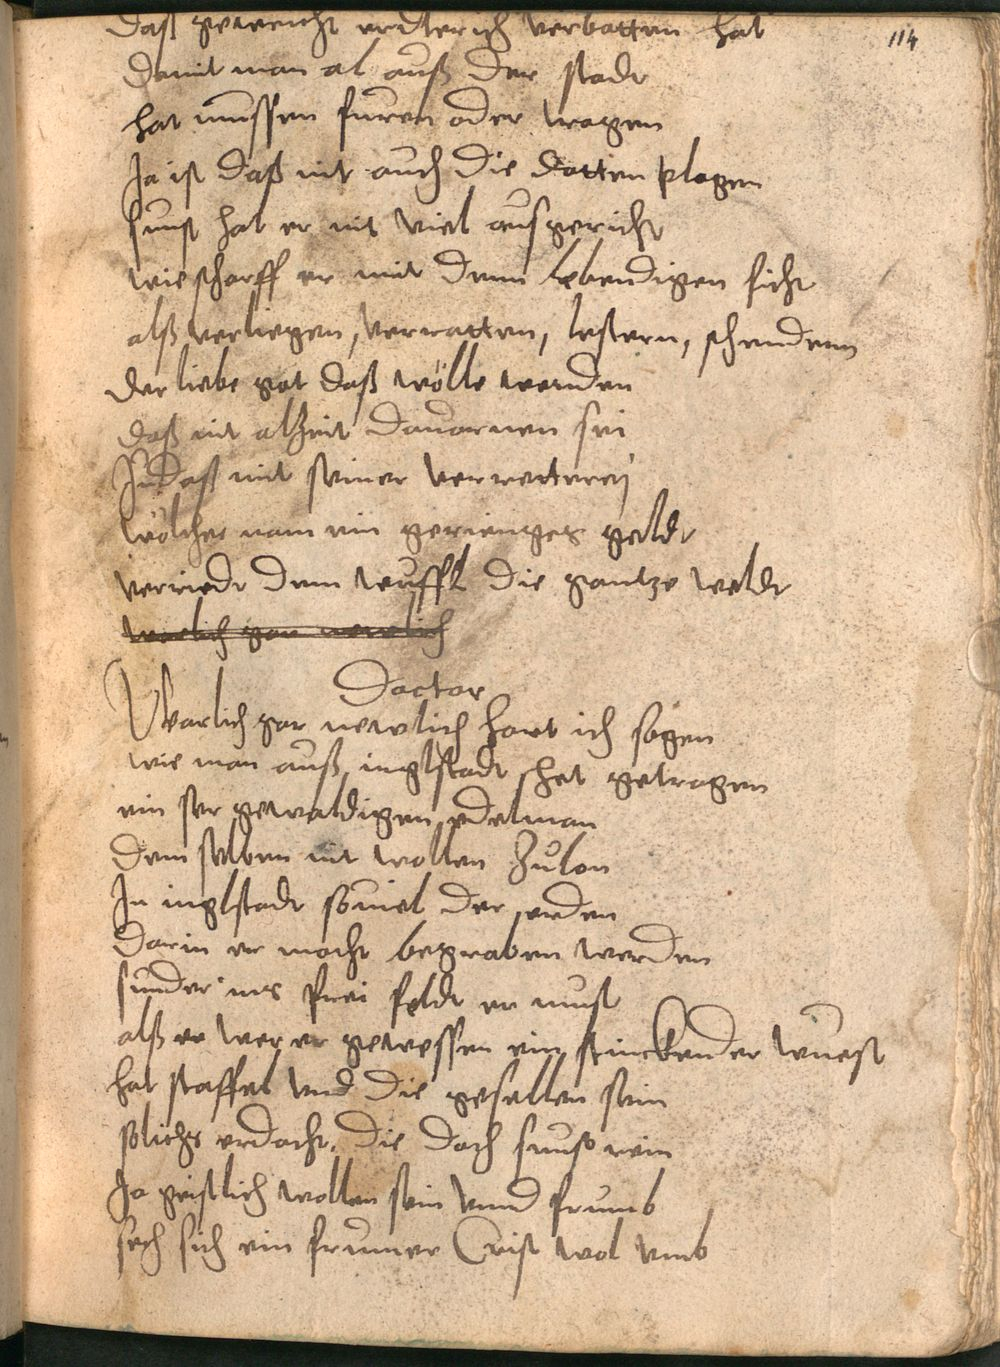 114
daß geweicht erdterich verbotten hat
damit man al auß der stadt
hat mussen furen oder tragen
Ja ist daß nit auch die dotten plagen
sunst hat er nit viel ausgericht
wie scharff er mit denn lebendigen ficht
alß verliegen, verratten, lestern, schendenn
der liebe got daß wölle wenden
daß nit alzeit dauornen sei
Judaß mit seiner verretterej
wölcher nam ein geringes geldt
verriedt dem teuffl die gantze weldt
warlich gar newlich
Doctor
Warlich gar newlich hort ich sagen
wie man auß inglstadt het getragen
ein ser gewaldigen edelman
dem selben nit wollen zulon
In inglstadt souiel der erden
darin er mocht begraben werden
sunder ins frei feldt er must
alß er wer er gewessen ein stinckender wuest
hat staffel vnd die gesellen sein
solichs erdacht, die doch sunst rein
Ja geistlich wollen sein vnnd frumb
sech sich ein frumer Crist wol vmb